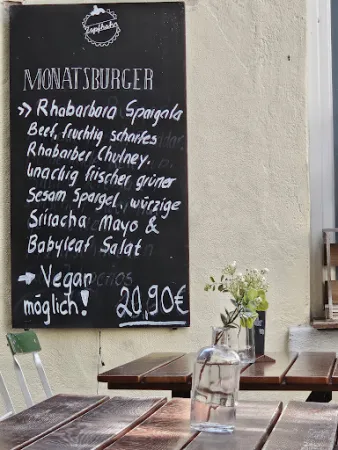 Zapfhahn
MONATSBURGER
>> Rhabarbara Spargola
Beef, fruchtig scharfes
Rhabarber Chutney.
knackig frischer grüner
Sesam Spargel, würzige
Sriracha Mayo &
Babyleaf Salat
→ Vegan
möglich! 20,90€